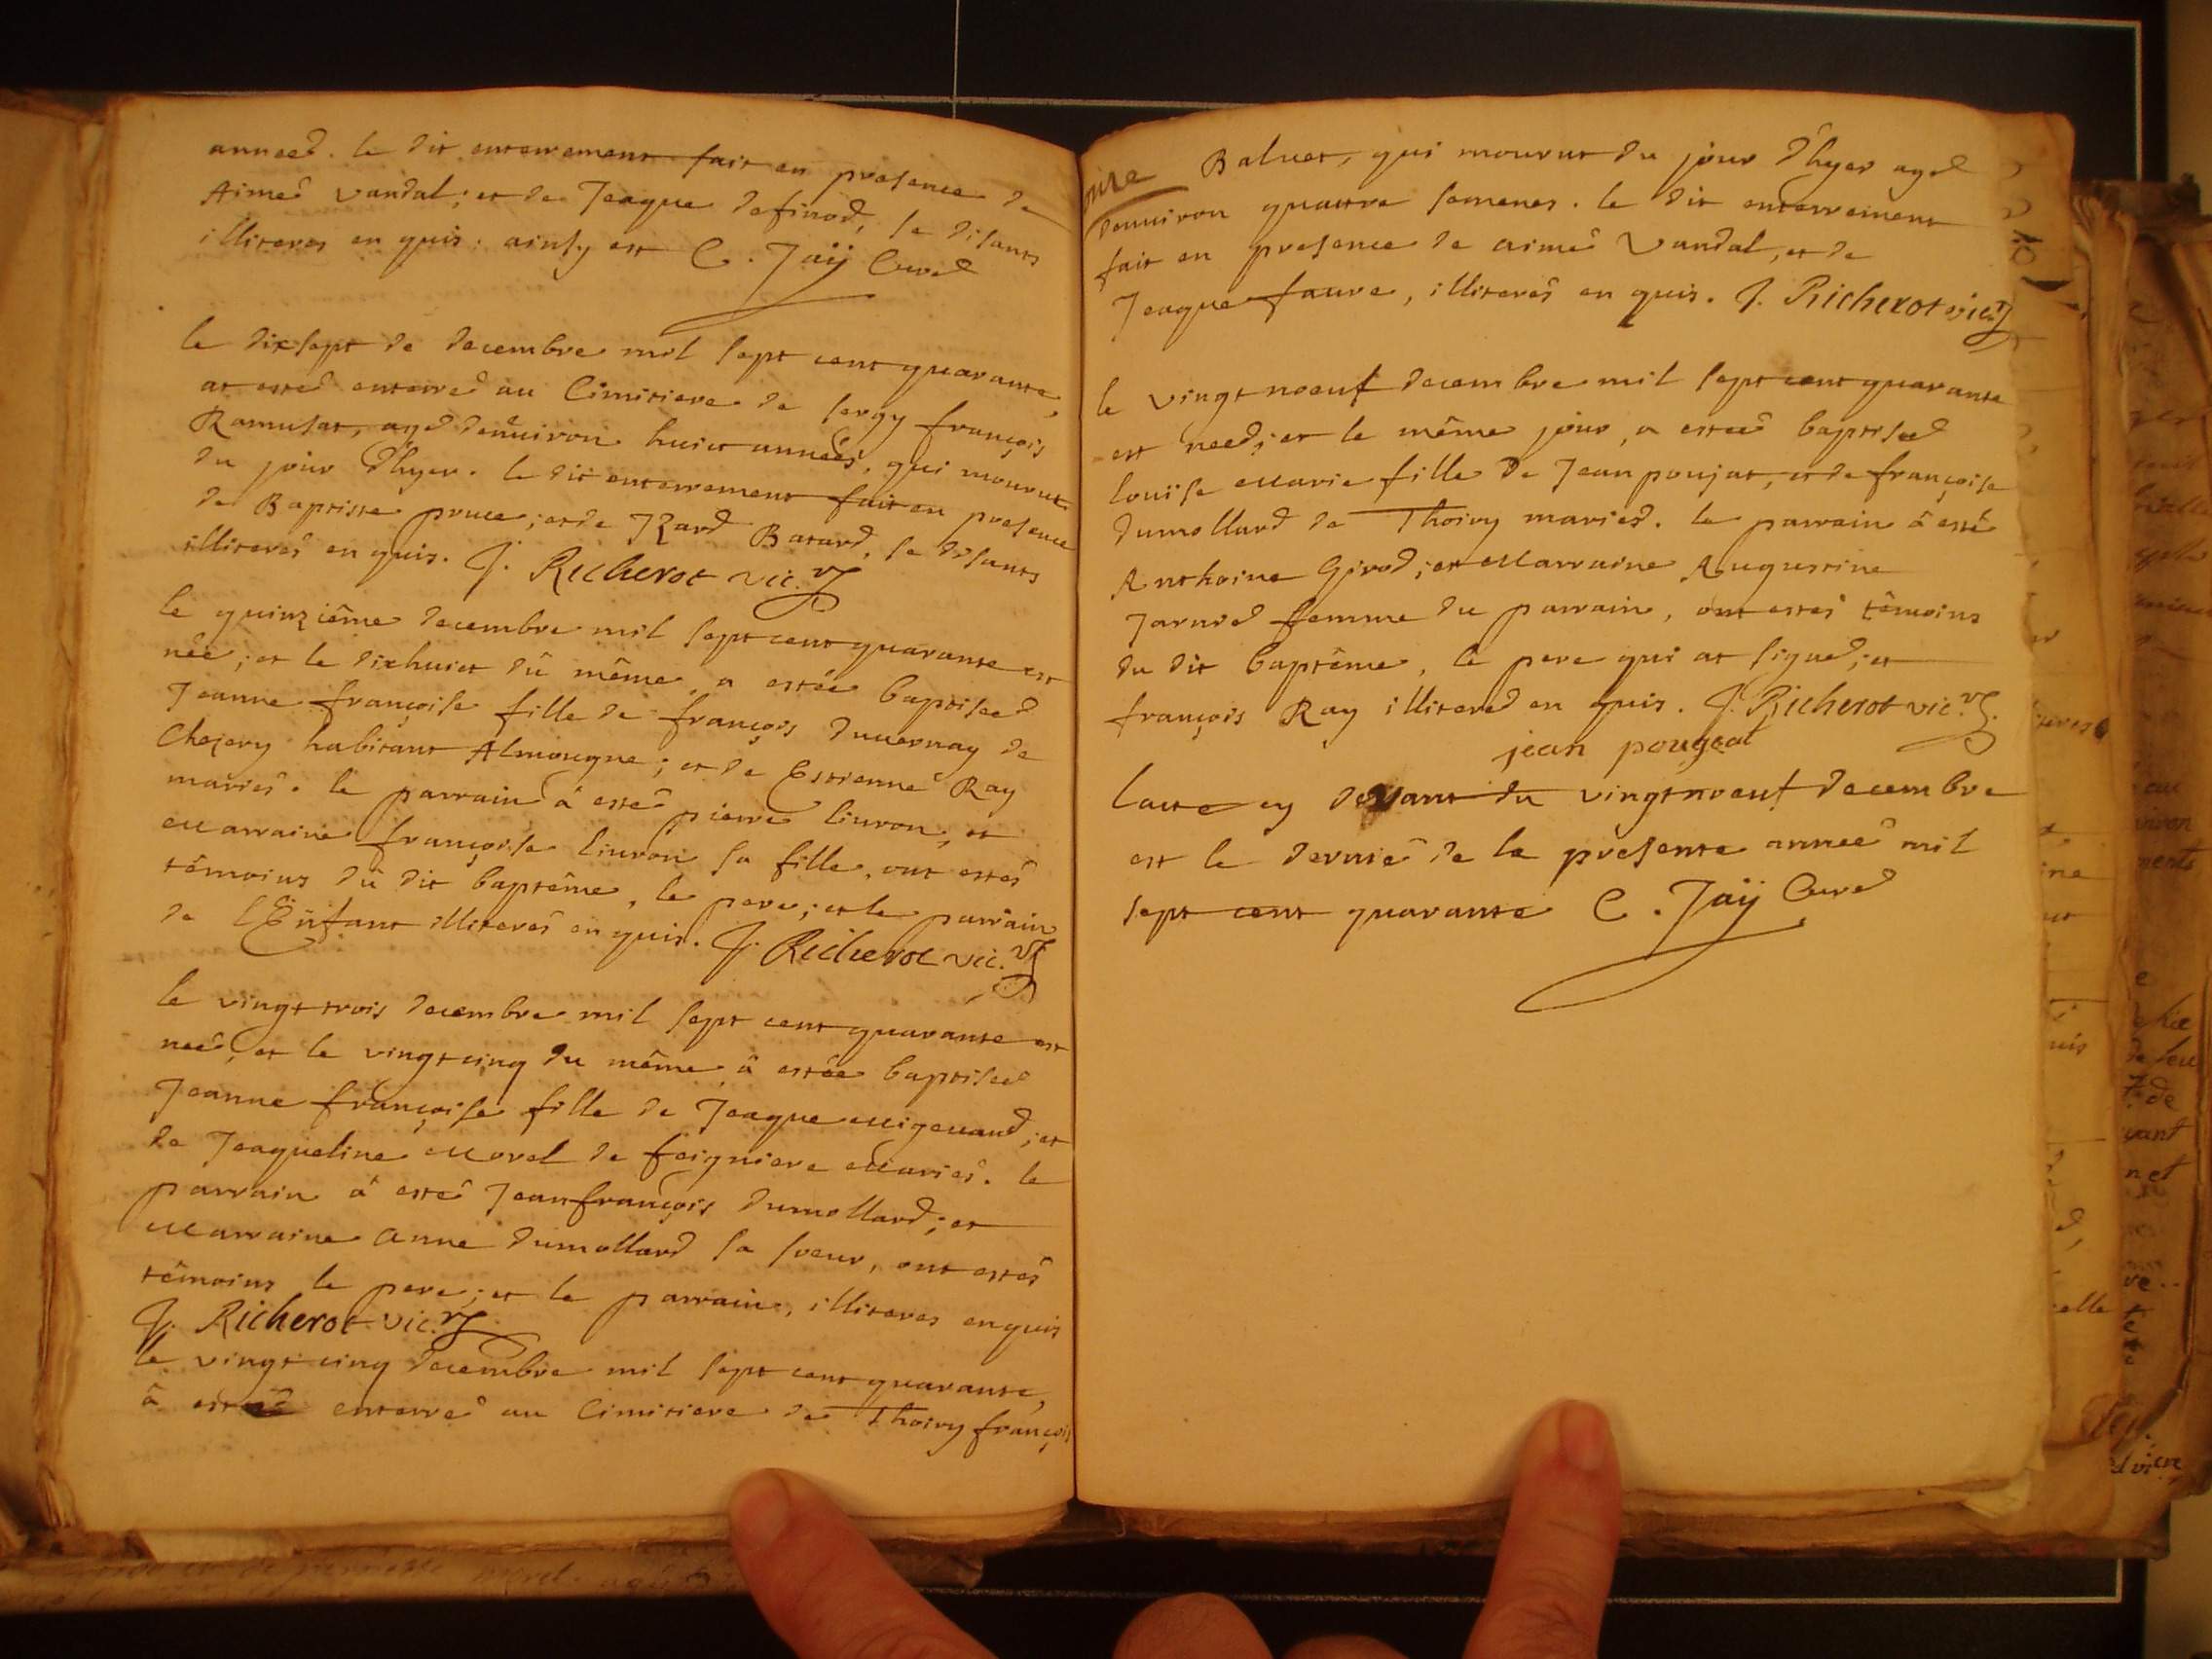 anneé. le dit enterrement fait en presence de
Aimé Vandal; et de Jeaque defirod, se disants
illiterés en quis: ainsy est C. Jaÿ Curé
le dixsept de decembre mil sept cent quarante,
at esté enterré au Cimitiere de sergy françois
Ramusat, agé denuiron huict années, qui mourut
du jour d'hyer. le dit enterrement fait en presence
de Baptiste pruce; et de Batard, se disants
illiterés en quis. J. Richerot vic.re
le quinziême decembre mil sept cent quarante est
née; et le dixhuict dû même, a estée baptiseé
Jeanne françoise fille de françois duuernay de
Chezery habitant Almongne; et de Estienné Ray
mariés. le parrain â esté pierre liuron, et
marraine françoise liuron sa fille, ont estés
têmoins dû dit baptême, le pere; et le parrain
de l'Enfant illiterés en quis. J. Richerot vic.re
le vingt trois decembre mil sept cent quarante est
neé, et le vingt cinq du même â estée baptiseé
Jeanne françoise fille de Jeaque migeuand; et
de Jeaqueline morel de feigniere mariés. le
parrain â esté Jeanfrançois dumollard; et
marraine Anne dumollard sa soeur, ont estés
têmoins le pere; et le parrain, illiteres enquis
J. Richerot vic.re
le vingt cinq decembre mil sept cent quarante,
â esté enterré au Cimitiere de Thoiry françois
Baluet, qui mourut du jour d'hyer agé
denuiron quattre semenes. le dit enterrement
fait en presence de aimé Vandal, et de
Jeaque faure, illiterés en quis. J. Richerot vic.re
le vingt noeuf decembre mil sept cent quarante
est neé; et le même jour, a esteé baptiseé
louïse marie fille de Jean poujat, et de françoise
dumollard de Thoiry mariés. le parrain â esté
Anthoine Girod; et marraine Augustine
Jarnod femme du parrain, ont estés têmoins
du dit baptême, le pere qui at signé; et
françois Ray illiteré en quis. J. Richerot vic.re
jean pougeat
lacte cy devant du vingtnoeuf decembre
est le dernié de la presente anneé mil
sept cent quarante C. Jaÿ Curé